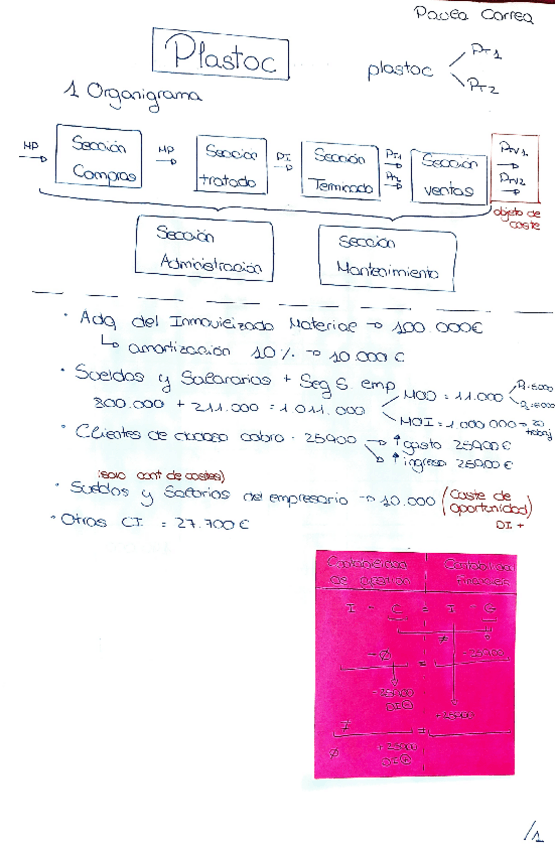 Paula Correa
Plastoc
plastoc
PT1
PT2
1 Organigrama
MP
Sección
Compras
MP
Sección
tratado
DI
Sección
Terminado
PT1
PT2
Sección
ventas
PTV1
PTV2
objeto de
coste
Sección
Administración
Sección
Mantenimiento
· Adq del Inmovilizado Material → 100.000€
↳ amortización 10% → 10.000€
· Sueldos y Salararios + Seg S. emp
800.000 + 211.000 = 1011.000
MOD = 11.000
MOI = 1.000.000
· Clientes de dudoso cobro · 25900
↑ gasto 25900€
↑ ingreso 25900€
(solo cont de costes)
· Sueldos y Salarios del empresario → 10.000 (Coste de
oportunidad)
DI +
· Otros CI = 27.700€
Contabilidad
Contabilidad
I - C = I - G
≠
- 25900
- 25900
DI
+25900
+25900
DI
/1